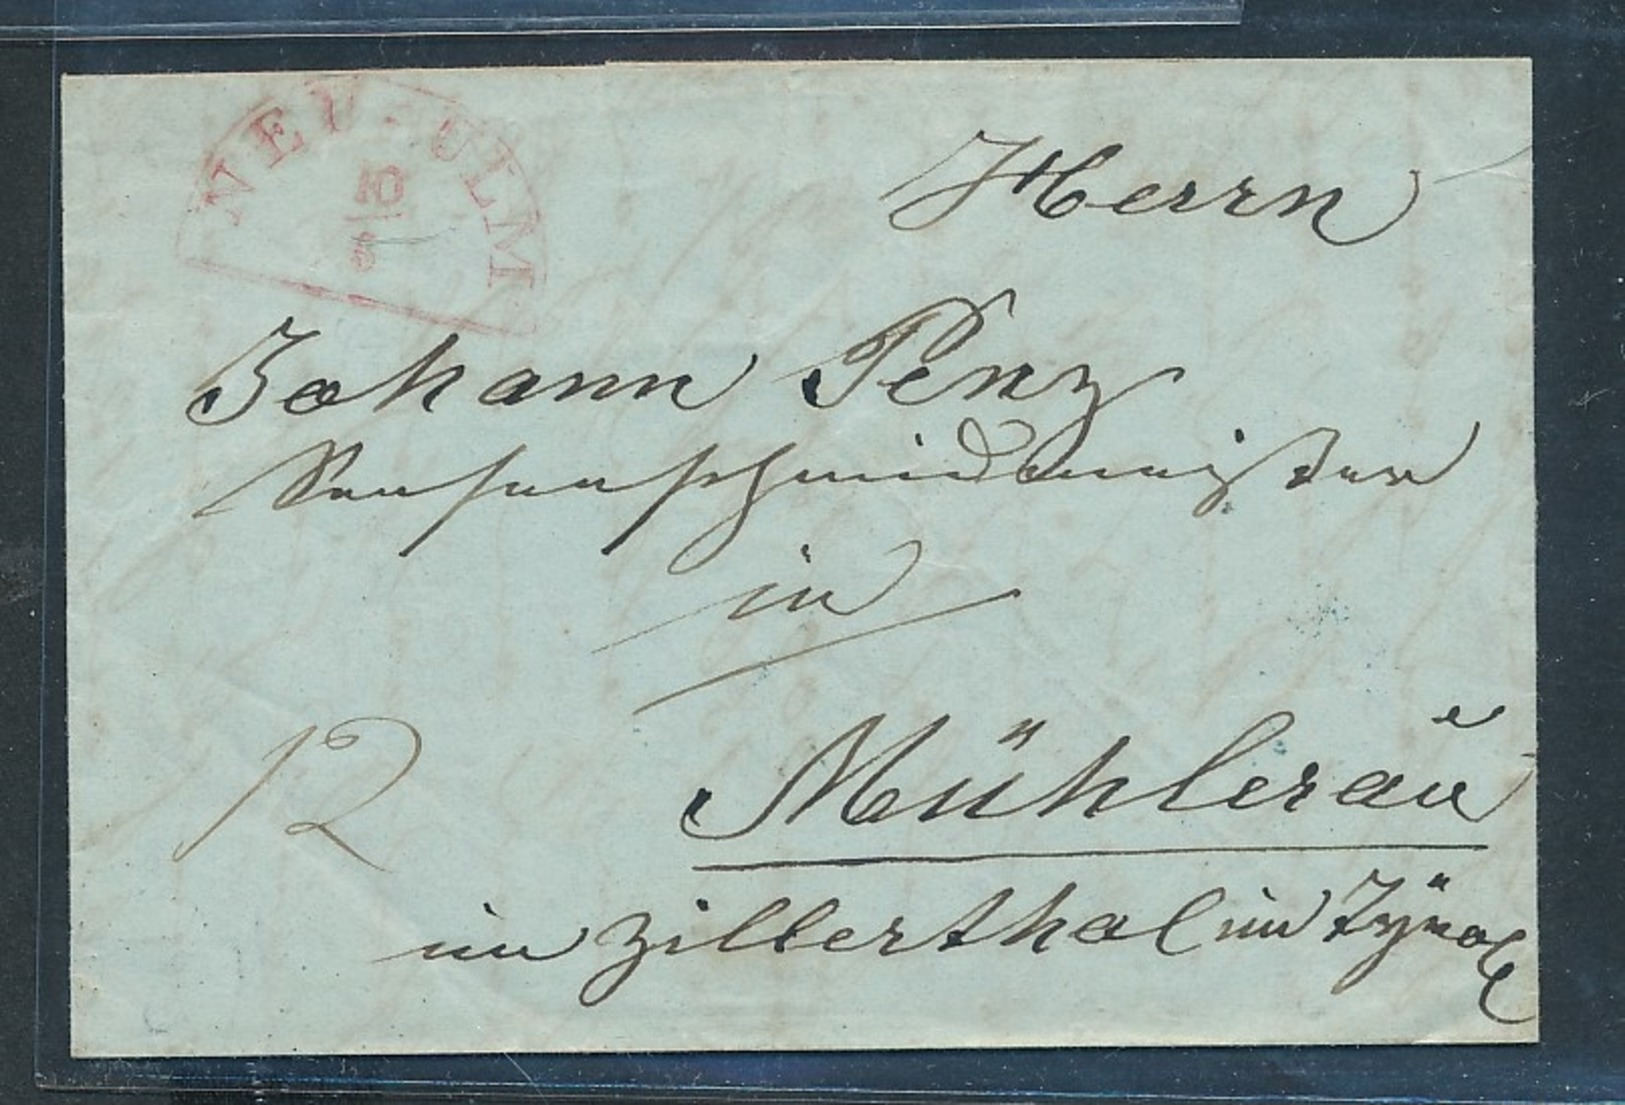 NEU-ULM
10
5
Herrn
Johann Penz
Sensenschmidmeister
in
12
Mühlerau
im Zillerthal im Tÿrol